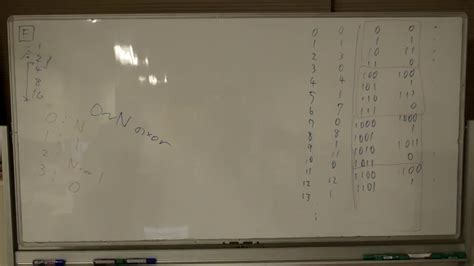 F
1
2
4
8
16
0 : N
1 : 1
2 : N
3 : 0
0~N のxor
0 0 0 0
1 1 1 1
2 3 10 11
3 0 11 0
4 4 100 100
5 1 101 1
6 7 110 111
7 0 111 0
8 8 1000 1000
9 1 1001 1
10 11 1010 1011
11 0 1011 0
12 12 1100 1100
13 1 1101 1